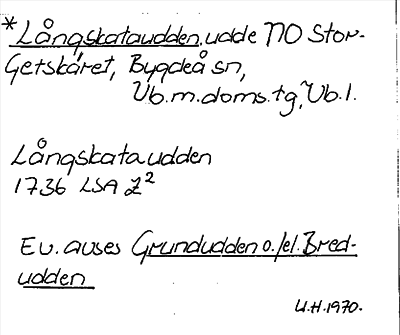 *Långskataudden, udde NO Stor-
Getskäret, Bygdeå sn,
Vb.m.doms.tg, Vb.l.
Långskataudden
1736 LSA Z²
Ev. avses Grundudden o./el. Bred-
udden
U.H.1970.